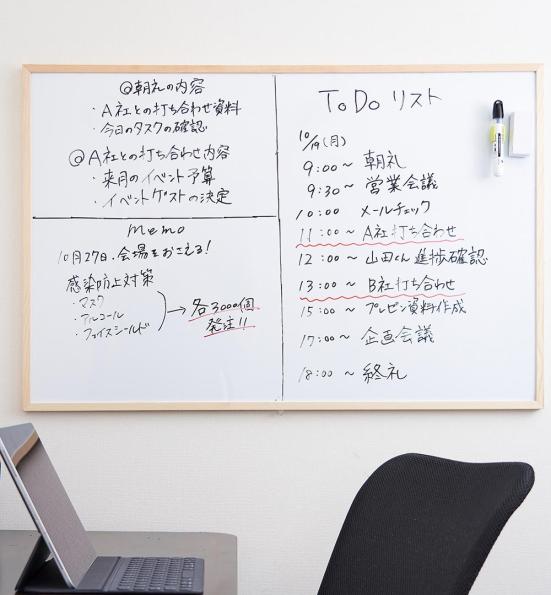 @朝礼の内容
・A社との打ち合わせ資料
・今日のタスクの確認
@A社との打ち合わせ内容
・来月のイベント予算
・イベントゲストの決定
memo
10月27日、会場をおさえる!
感染防止対策
・マスク
・アルコール
・フェイスシールド
→各3000個
発注!!
ToDo リスト
10/19(月)
9:00~ 朝礼
9:30~ 営業会議
10:00 メールチェック
11:00~ A社打ち合わせ
12:00~ 山田くん進捗確認
13:00~ B社打ち合わせ
15:00~ プレゼン資料作成
17:00~ 企画会議
18:00~ 終礼